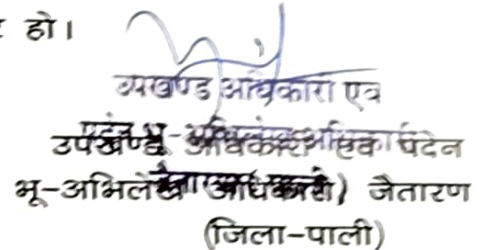 हो।
उपखण्ड अधिकारी एवं
उपखण्ड अधिकारी एवं पदेन
भू-अभिलेख अधिकारी) जैतारण
(जिला-पाली)